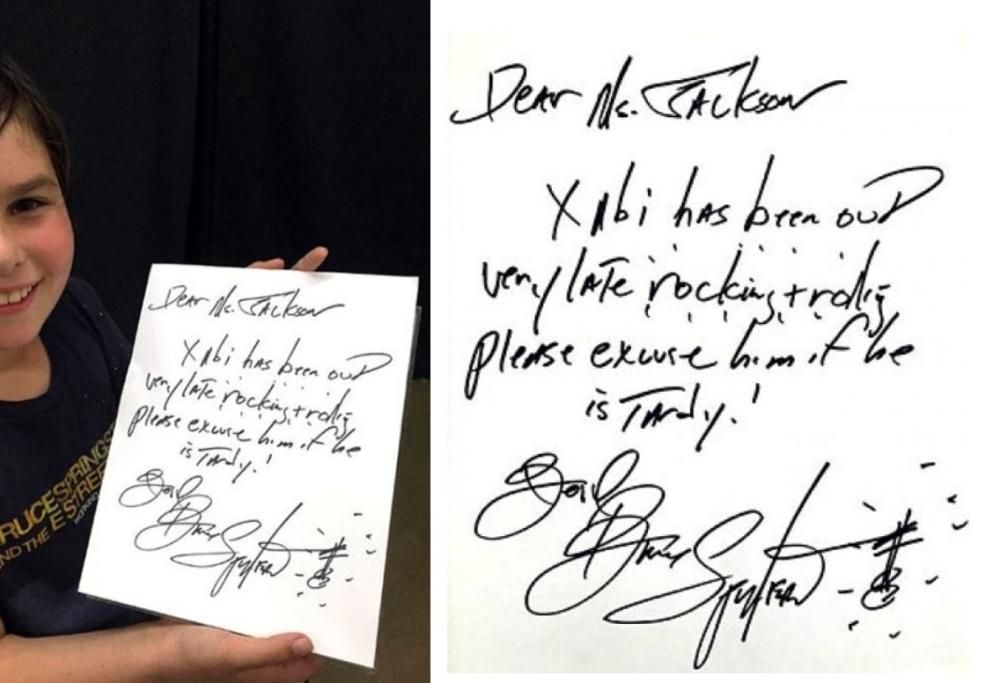 Dear Ms. Jackson
Xabi has been out
very late rocking + rolling
please excuse him if he
is Tardy!
Bruce
Springsteen
RUCE SPRINGS
ND THE E STREE
Dear Ms. Jackson
Xabi has been out
very late rocking + rolling
please excuse him if he
is Tardy!
Bruce
Springsteen